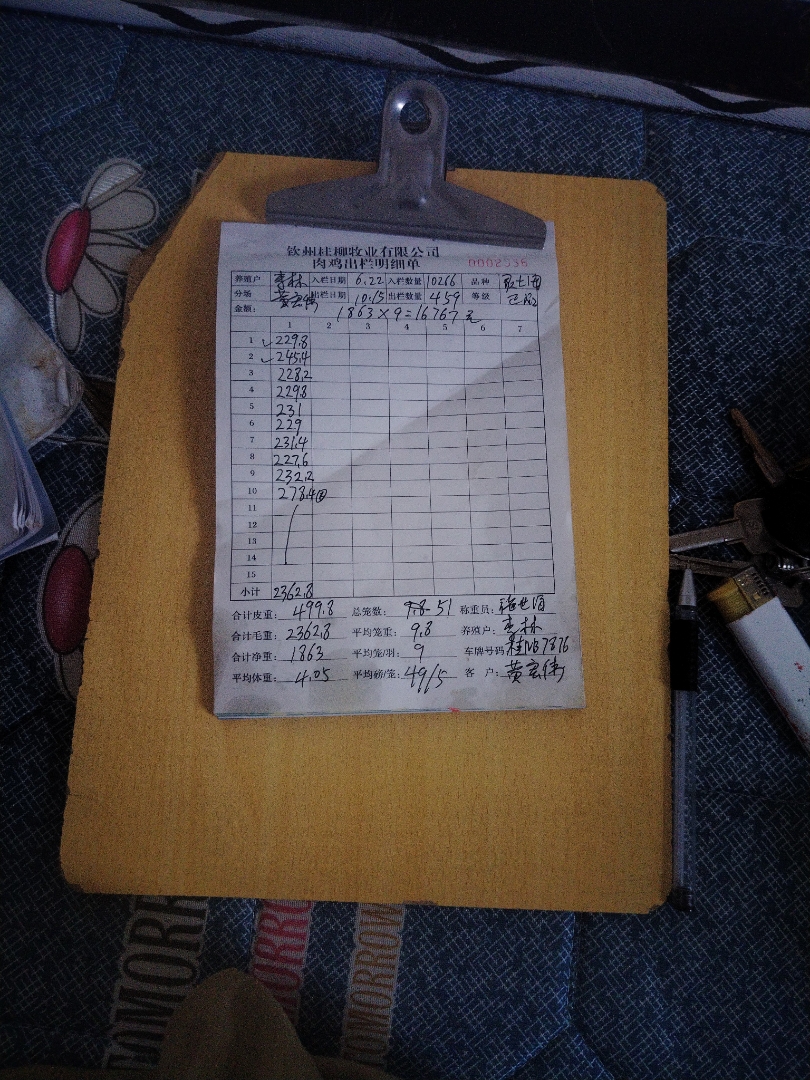 钦州桂柳牧业有限公司
肉鸡出栏明细单 0002536
养殖户 李林 入栏日期 6.22 入栏数量 10266 品种
分场 黄宏伟 出栏日期 10.15 出栏数量 459 等级
金额： 1863×9=16767元
1 2 3 4 5 6 7
1 229.8
2 245.4
3 228.2
4 229.8
5 231
6 229
7 231.4
8 227.6
9 232.2
10 278.4
11
12
13
14
15
小计 2362.8
合计皮重： 499.8 总笼数： 51 称重员：
合计毛重： 2362.8 平均笼重： 9.8 养殖户： 李林
合计净重： 1863 平均笼/羽： 9 车牌号码 7876
平均体重： 4.05 平均磅/笼： 49/5 客户： 黄宏伟
TOMORROW
TOMORROW
TOMORROW